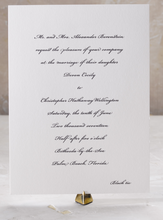 Mr. and Mrs. Alexander Bernstein
request the pleasure of your company
at the marriage of their daughter
Dawn Emily
to
Christopher Hathaway Wellington
Saturday, the tenth of June
Two thousand seventeen
Half after five o'clock
Bethesda by the Sea
Palm Beach, Florida
Black tie